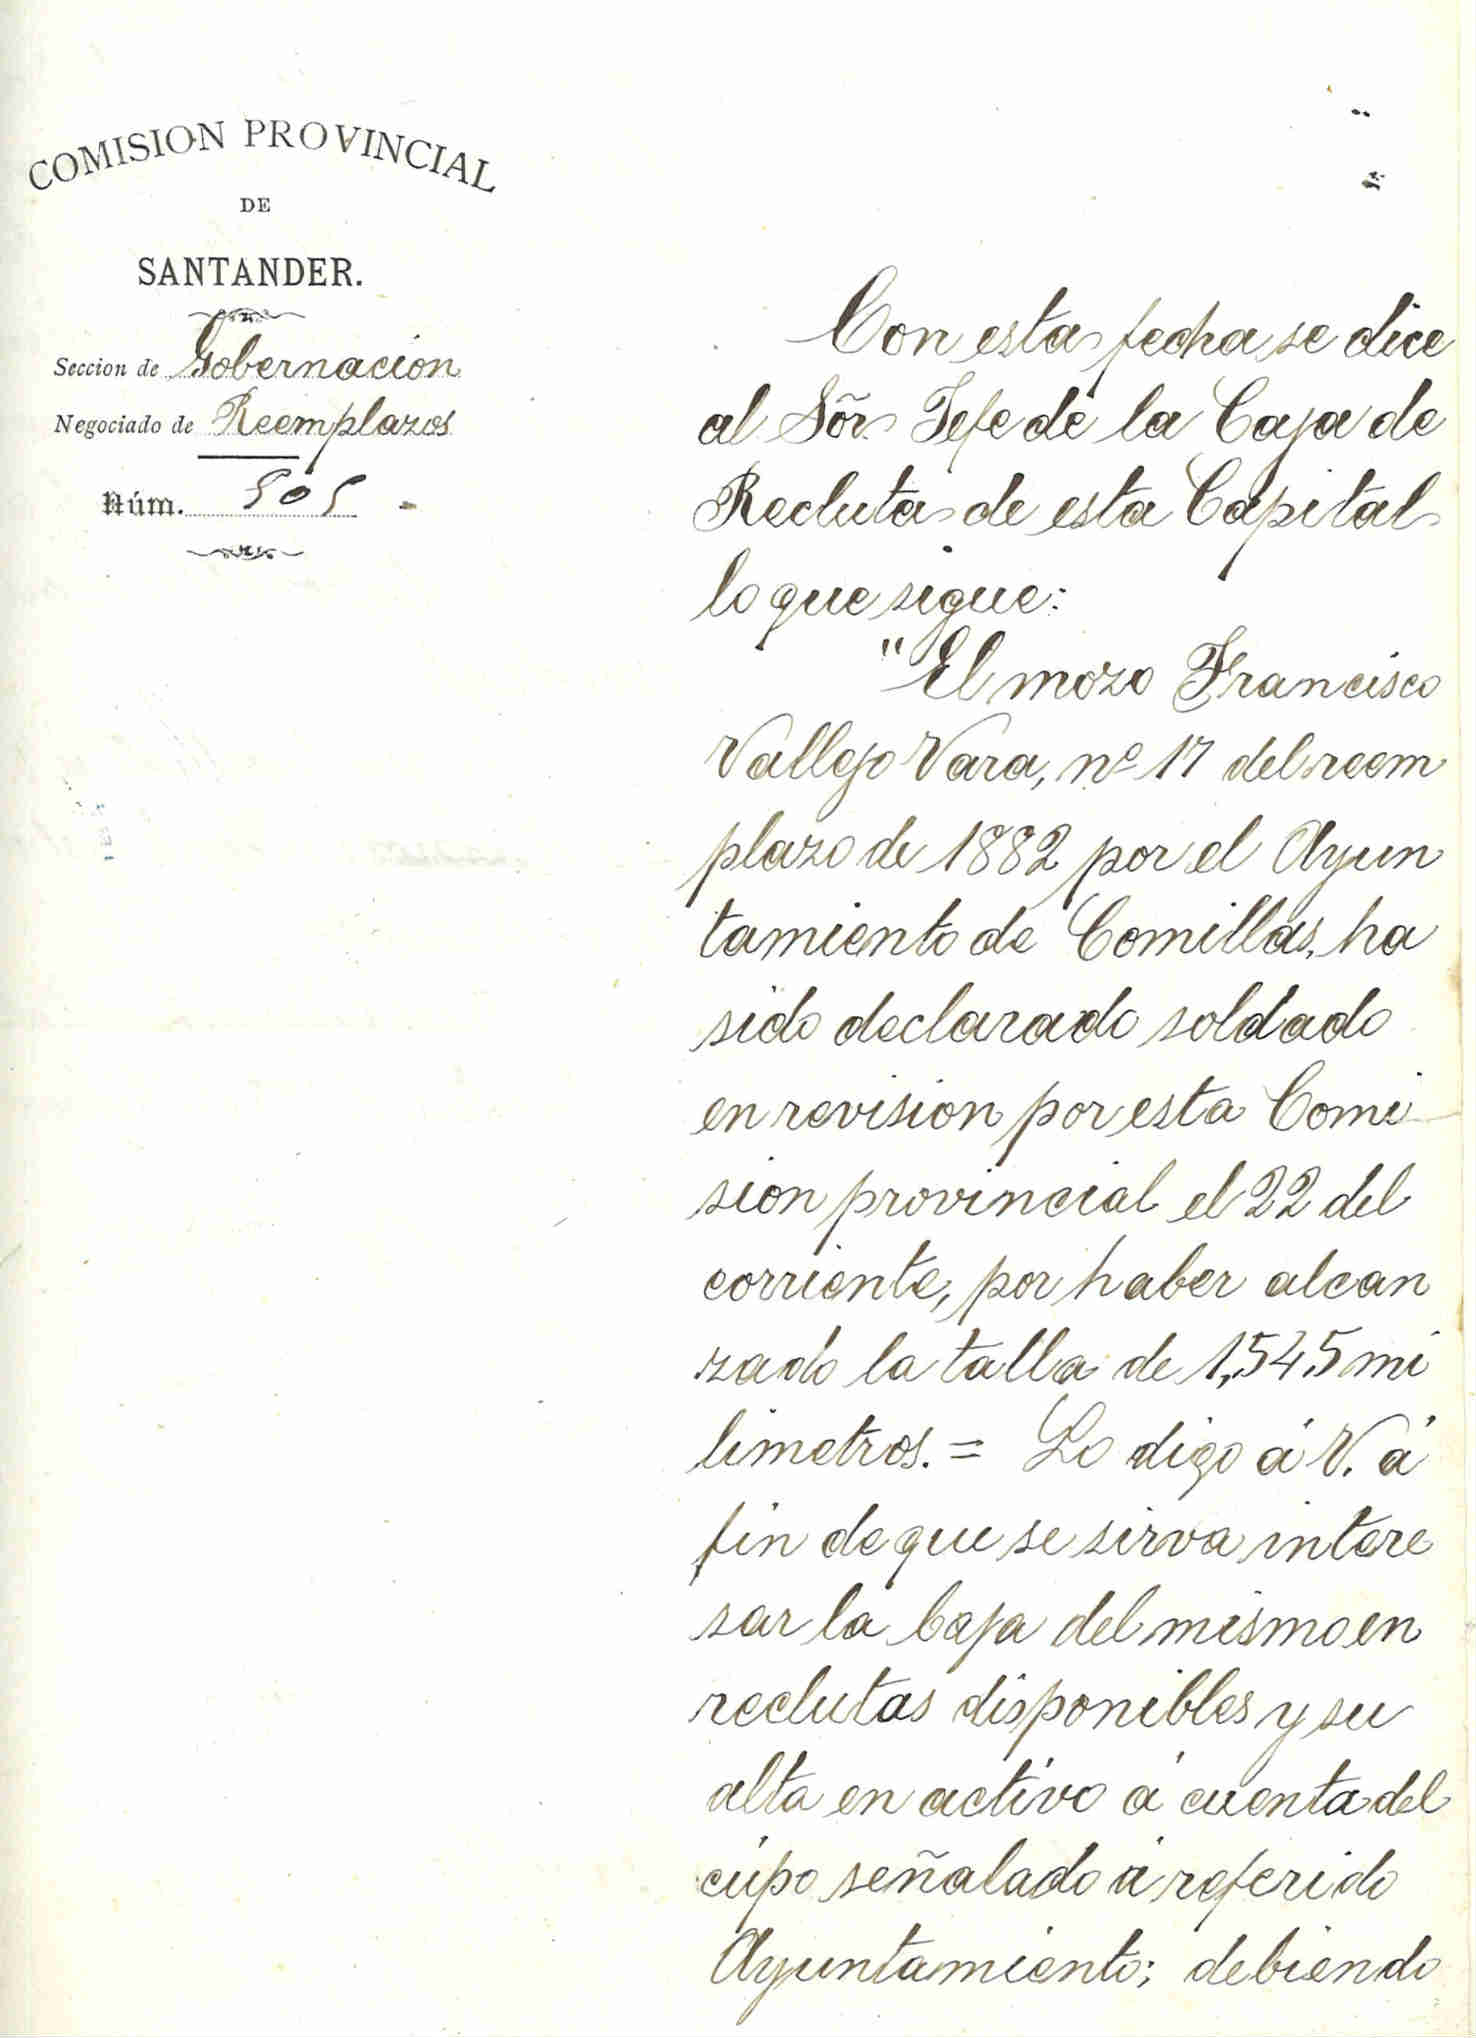 COMISION PROVINCIAL
DE
SANTANDER.
Seccion de Gobernacion
Negociado de Reemplazos
Núm. 505
Con esta fecha se dice
al Sõr. Jefe de la Caja de
Recluta de esta Capital
lo que sigue:
"El mozo Francisco
Vallejo Vara, nº 17 del reem
plazo de 1882 por el Ayun
tamiento de Comillas, ha
sido declarado soldado
en revision por esta Comi
sion provincial el 22 del
corriente, por haber alcan
zado la talla de 1,545 mi
limetros. = Lo digo á V. á
fin de que se sirva intere
sar la baja del mismo en
reclutas disponibles y su
alta en activo á cuenta del
cupo señalado á referido
Ayuntamiento; debiendo